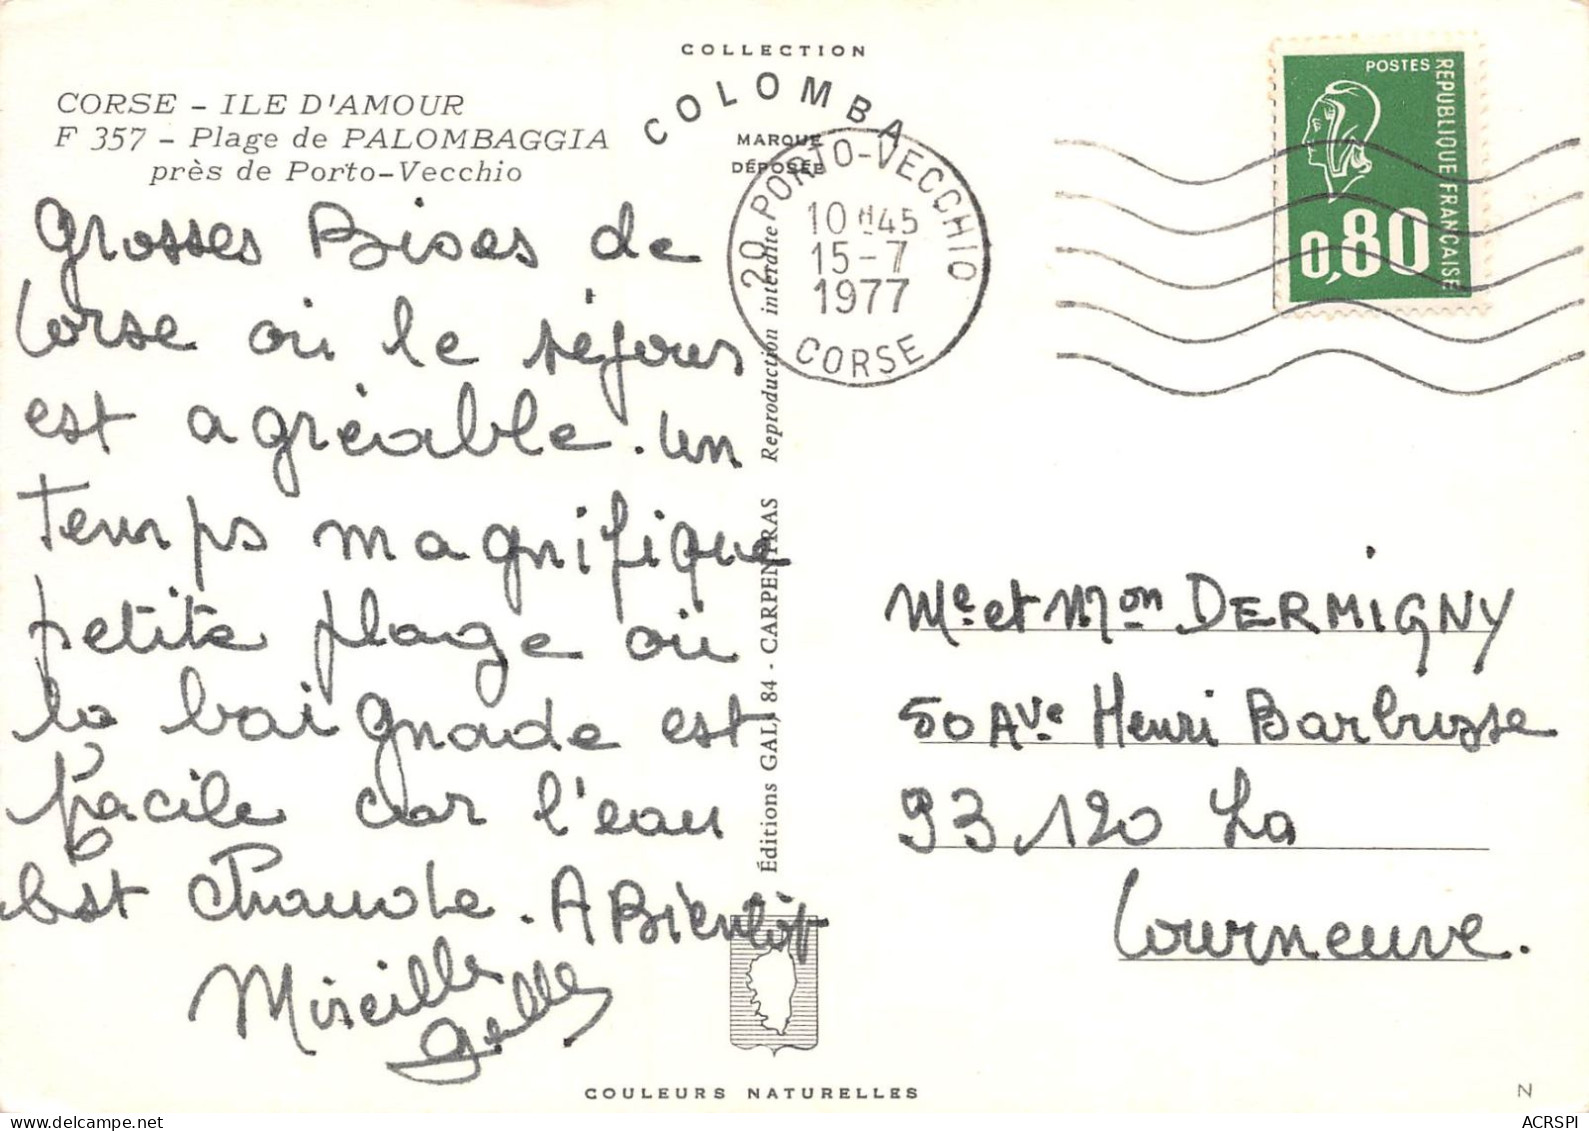 COLLECTION
COLOMBA
MARQUE
DÉPOSÉE
CORSE - ILE D'AMOUR
F 357 - Plage de PALOMBAGGIA
près de Porto-Vecchio
Grosses Bises de
Corse où le séjour
est agréable. Un
Temps magnifique
petite plage où
la baignade est
facile car l'eau
est Chaude. A Bientôt
Mireille
20 PORTO-VECCHIO
10H45
15-7
1977
CORSE
POSTES
REPUBLIQUE FRANÇAISE
0,80
Éditions GAL, 84 - CARPENTRAS Reproduction interdite
Me et Mon DERMIGNY
50 Ave Henri Barbusse
93120 La
Courneuve.
COULEURS NATURELLES
N
ACRSPI